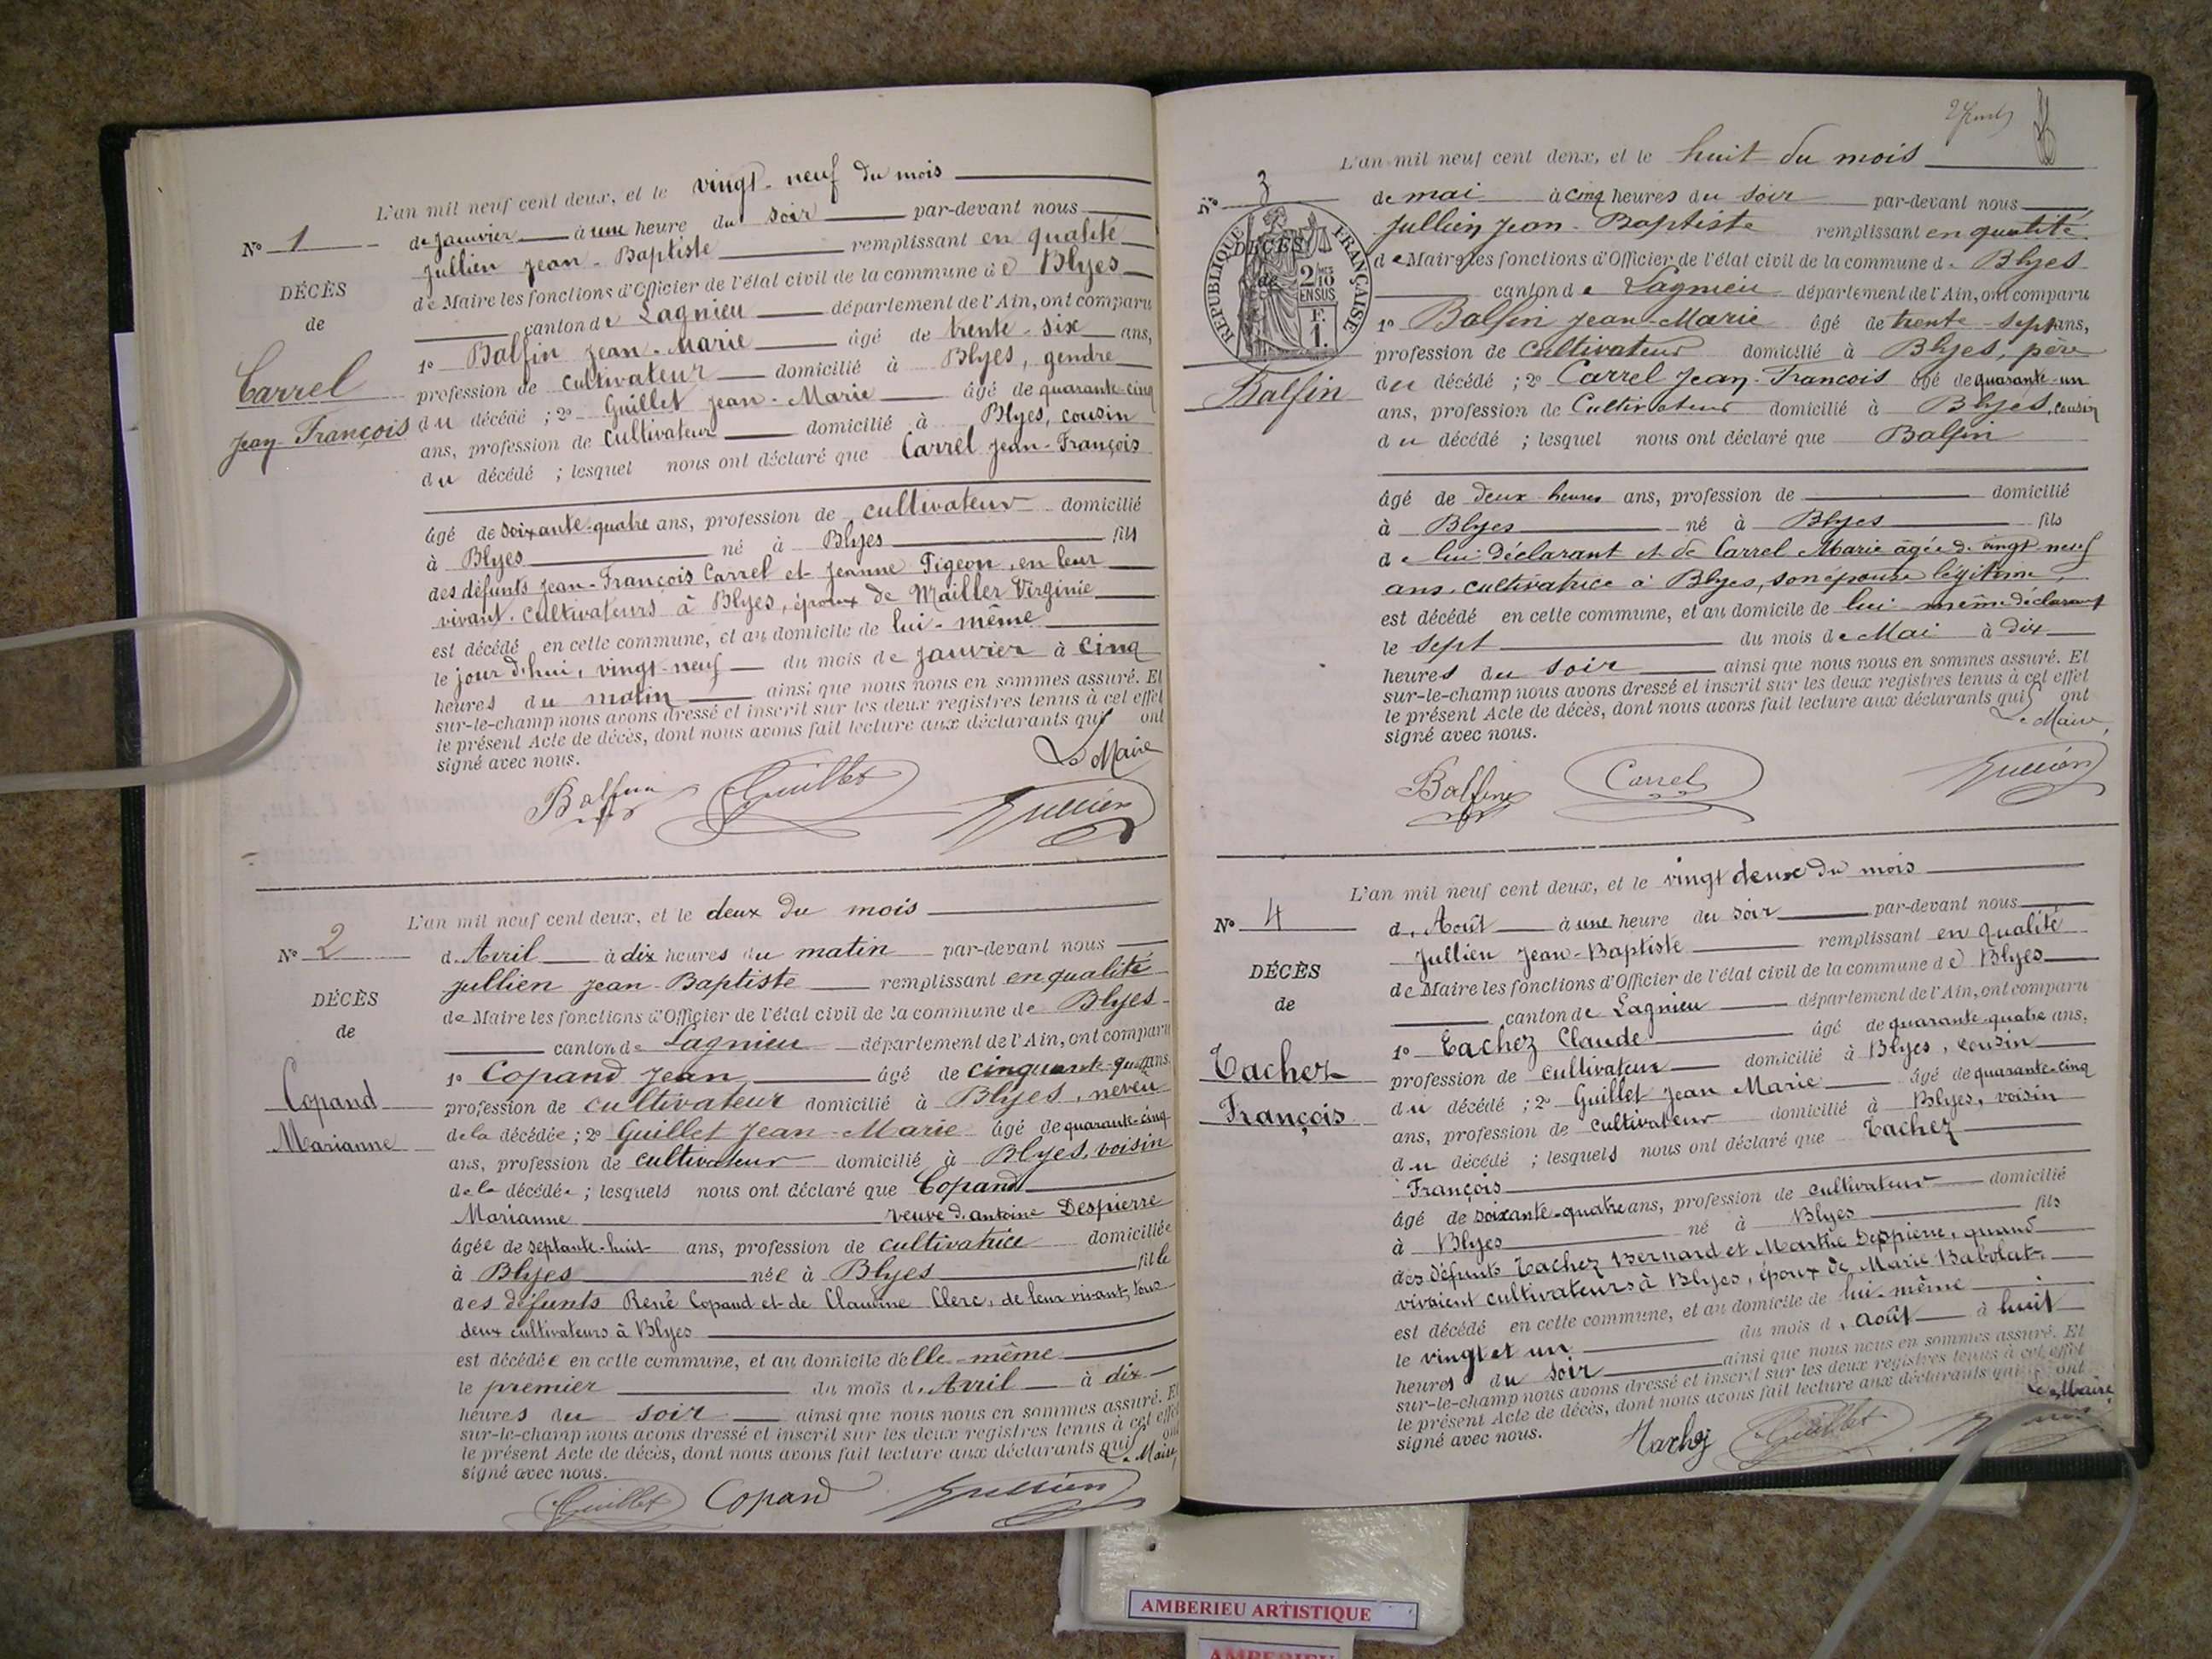 L'an mil neuf cent deux, et le vingt-neuf du mois
N° 1
de janvier à une heure du soir par-devant nous
Jullien Jean-Baptiste remplissant en qualité
de Maire les fonctions d'Officier de l'état civil de la commune de Blyes
canton de Lagnieu département de l'Ain, ont comparu
1° Balfin Jean-Marie âgé de trente-six ans,
profession de cultivateur domicilié à Blyes, gendre
du décédé ; 2° Guillet Jean-Marie âgé de quarante-cinq
ans, profession de cultivateur domicilié à Blyes, cousin
du décédé ; lesquel nous ont déclaré que Carrel Jean-François
DÉCÈS
de
Carrel
Jean-François
âgé de soixante-quatre ans, profession de cultivateur domicilié
à Blyes né à Blyes fils
des défunts Jean-François Carrel et Jeanne Pigeon, en leur
vivant cultivateurs à Blyes, époux de Mailler Virginie
est décédé en cette commune, et au domicile de lui-même
le jour d'hui, vingt-neuf du mois de janvier à cinq
heures du matin ainsi que nous nous en sommes assuré. Et
sur-le-champ nous avons dressé et inscrit sur les deux registres tenus à cet effet
le présent Acte de décès, dont nous avons fait lecture aux déclarants qui ont
signé avec nous.
Le Maire
Balfin Guillet Jullien
L'an mil neuf cent deux, et le deux du mois
N° 2
d'Avril à dix heures du matin par-devant nous
Jullien Jean-Baptiste remplissant en qualité
de Maire les fonctions d'Officier de l'état civil de la commune de Blyes
canton de Lagnieu département de l'Ain, ont comparu
1° Copand Jean âgé de cinquante ans,
profession de cultivateur domicilié à Blyes, neveu
de la décédée ; 2° Guillet Jean-Marie âgé de quarante-cinq
ans, profession de cultivateur domicilié à Blyes, voisin
de la décédée ; lesquels nous ont déclaré que Copand
Marianne veuve d'antoine Despierre
DÉCÈS
de
Copand
Marianne
âgée de septante-huit ans, profession de cultivatrice domiciliée
à Blyes née à Blyes fille
des défunts René Copand et de Claudine Clerc, de leur vivant, tous
deux cultivateurs à Blyes
est décédée en cette commune, et au domicile d'elle-même
le premier du mois d'Avril à dix
heures du soir ainsi que nous nous en sommes assuré. Et
sur-le-champ nous avons dressé et inscrit sur les deux registres tenus à cet effet
le présent Acte de décès, dont nous avons fait lecture aux déclarants qui ont
signé avec nous.
Le Maire,
Guillet Copand Jullien
L'an mil neuf cent deux, et le huit du mois
N° 3
de mai à cinq heures du soir par-devant nous
Jullien Jean-Baptiste remplissant en qualité
de Maire les fonctions d'Officier de l'état civil de la commune de Blyes
canton de Lagnieu département de l'Ain, ont comparu
1° Balfin Jean-Marie âgé de trente-sept ans,
profession de Cultivateur domicilié à Blyes, père
du décédé ; 2° Carrel Jean-François âgé de quarante-un
ans, profession de Cultivateur domicilié à Blyes, cousin
du décédé ; lesquel nous ont déclaré que Balfin
RÉPUBLIQUE FRANÇAISE
DÉCÈS
de
2/10
EN SUS
F.
1.
Balfin
âgé de deux heures ans, profession de domicilié
à Blyes né à Blyes fils
de lui déclarant et de Carrel Marie âgée de vingt-neuf
ans, cultivatrice à Blyes, son épouse légitime,
est décédé en cette commune, et au domicile de lui-même déclarant
le sept du mois de Mai à dix
heures du soir ainsi que nous nous en sommes assuré. Et
sur-le-champ nous avons dressé et inscrit sur les deux registres tenus à cet effet
le présent Acte de décès, dont nous avons fait lecture aux déclarants qui ont
signé avec nous.
Le Maire,
Balfin Carrel Jullien
L'an mil neuf cent deux, et le vingt deux du mois
N° 4
d'Août à une heure du soir par-devant nous
Jullien Jean-Baptiste remplissant en qualité
de Maire les fonctions d'Officier de l'état civil de la commune de Blyes
canton de Lagnieu département de l'Ain, ont comparu
1° Tachez Claude âgé de quarante-quatre ans,
profession de cultivateur domicilié à Blyes, cousin
du décédé ; 2° Guillet Jean Marie âgé de quarante-cinq
ans, profession de cultivateur domicilié à Blyes, voisin
du décédé ; lesquels nous ont déclaré que Tachez
François
DÉCÈS
de
Tachez
François
âgé de soixante-quatre ans, profession de cultivateur domicilié
à Blyes né à Blyes fils
des défunts Tachez Bernard et Marthe Despierre, quand
vivaient cultivateurs à Blyes, époux de Marie Babolat
est décédé en cette commune, et au domicile de lui-même
le vingt et un du mois d'août à huit
heures du soir ainsi que nous nous en sommes assuré. Et
sur-le-champ nous avons dressé et inscrit sur les deux registres tenus à cet effet
le présent Acte de décès, dont nous avons fait lecture aux déclarants qui ont
signé avec nous.
Le Maire
Tachez Guillet Jullien
AMBERIEU ARTISTIQUE
AMBERIEU